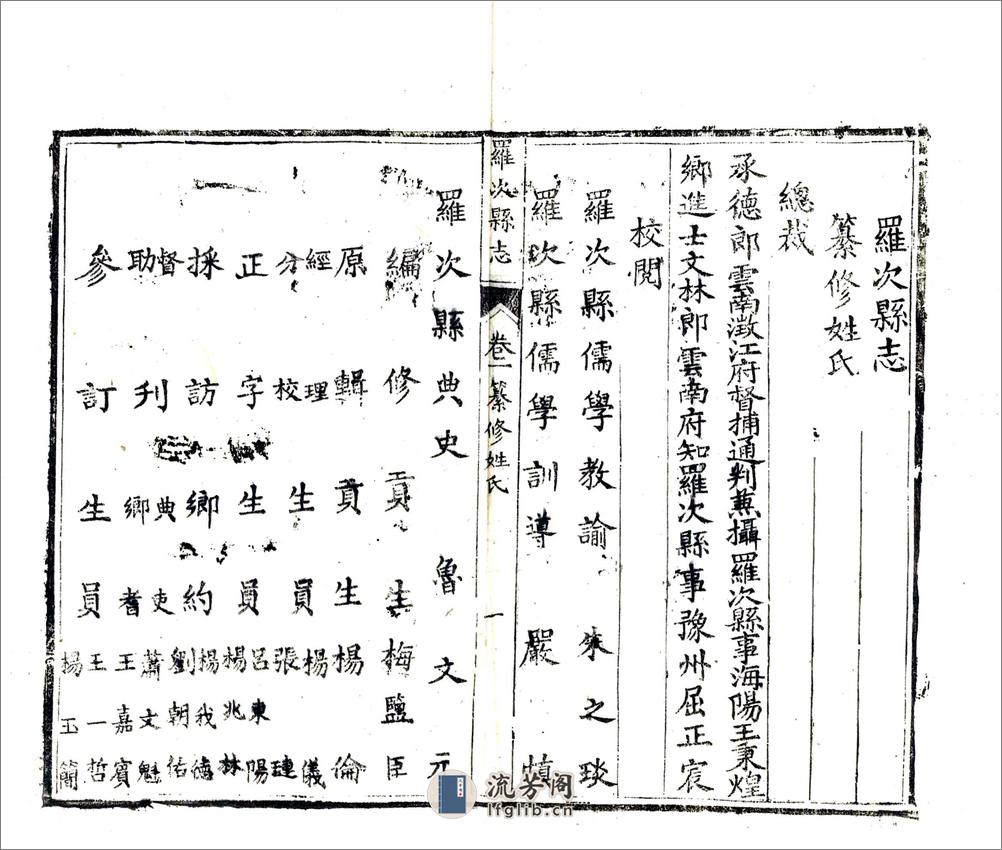 羅次縣志
纂修姓氏
總裁
承德郎雲南澂江府督捕通判兼攝羅次縣事海陽王秉煌
鄉進士文林郎雲南府知羅次縣事豫州屈正宸
校閱
羅次縣儒學教諭 朱之琰
羅次縣儒學訓導 嚴慎
羅次縣志 卷一 纂修姓氏 一
羅次縣典史 魯文元
編修 貢生 梅鹽臣
原輯 貢生 楊倫
經理 分校 生員 楊儀 張璉
正字 生員 呂東陽 楊兆林
採訪 鄉約 楊我德 劉朝佑
督刊 典吏 蕭文魁
助刊 鄉耆 王嘉賓
參訂 生員 王一哲 楊玉簡
流芳阁
lfglib.cn